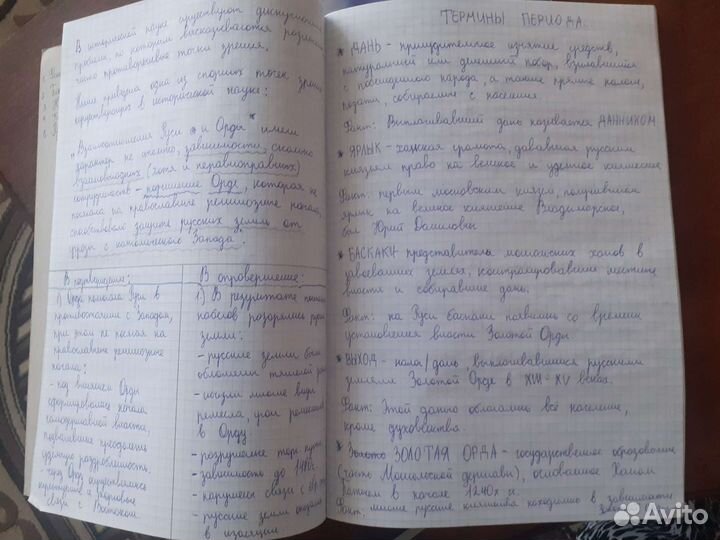 В исторической науке существуют дискуссион
проблемы, по которым высказываются различн
часто противоречивые точки зрения.
Ниже приведена одна из спорных точек зрен
существующих в исторической науке:
"Взаимоотношения Руси и Орды имели
характер не столько зависимости, сколько
взаимовыгодных (хотя и неравноправных)
- подчинение Орде, которая не
посягала на православные религиозные начала,
способствовало защите русских земель от
угрозы с католического Запада"
В подтверждение:
1) Орда помогала Руси в
противостоянии с Западом,
при этом не посягая на
православные религиозные
начала:
- под влиянием Орды
сформировались начала
самодержавной власти,
позволившие преодолеть
удельную раздробленность.
- через Орду осуществлялись
связи с Востоком
В опровержение:
1) В результате
набегов разорялись русск
земли:
- русские земли были
обложены тяжелой
- исчезли многие виды
ремесла, угон ремеслен
в Орду
- разрушение торг. путей
- зависимость до 1480г.
- нарушены связи с
- русские земли оказал
в изоляции
ТЕРМИНЫ ПЕРИОДА.
* ДАНЬ - принудительное изъятие средств,
натуральный или денежный побор, взимавшийся
с побежденного народа, а также прямые налоги,
подати, собираемые с населения.
Факт: Выплачивавший дань называется ДАННИКОМ
* ЯРЛЫК - ханская грамота, дававшая русским
князьям право на великое и удельное княжение
Факт: первым московским князем, получившим
ярлык на великое княжение Владимирское,
был Юрий Данилович
* БАСКАКИ - представители монгольских ханов в
завоеванных землях, контролировавшие местные
власти и собиравшие дань.
Факт: на Руси баскаки появились со времени
установления власти Золотой Орды.
* ВЫХОД - налог/дань, выплачивавшийся русскими
землями Золотой Орде в XIII-XV веках.
Факт: Этой данью облагалось всё население,
кроме духовенства.
* ЗОЛОТАЯ ОРДА - государственное образование
(часть Монгольской державы), основанное Ханом
Батыем в начале 1240х гг.
Факт: многие русские княжества находились в зависимости
Avito